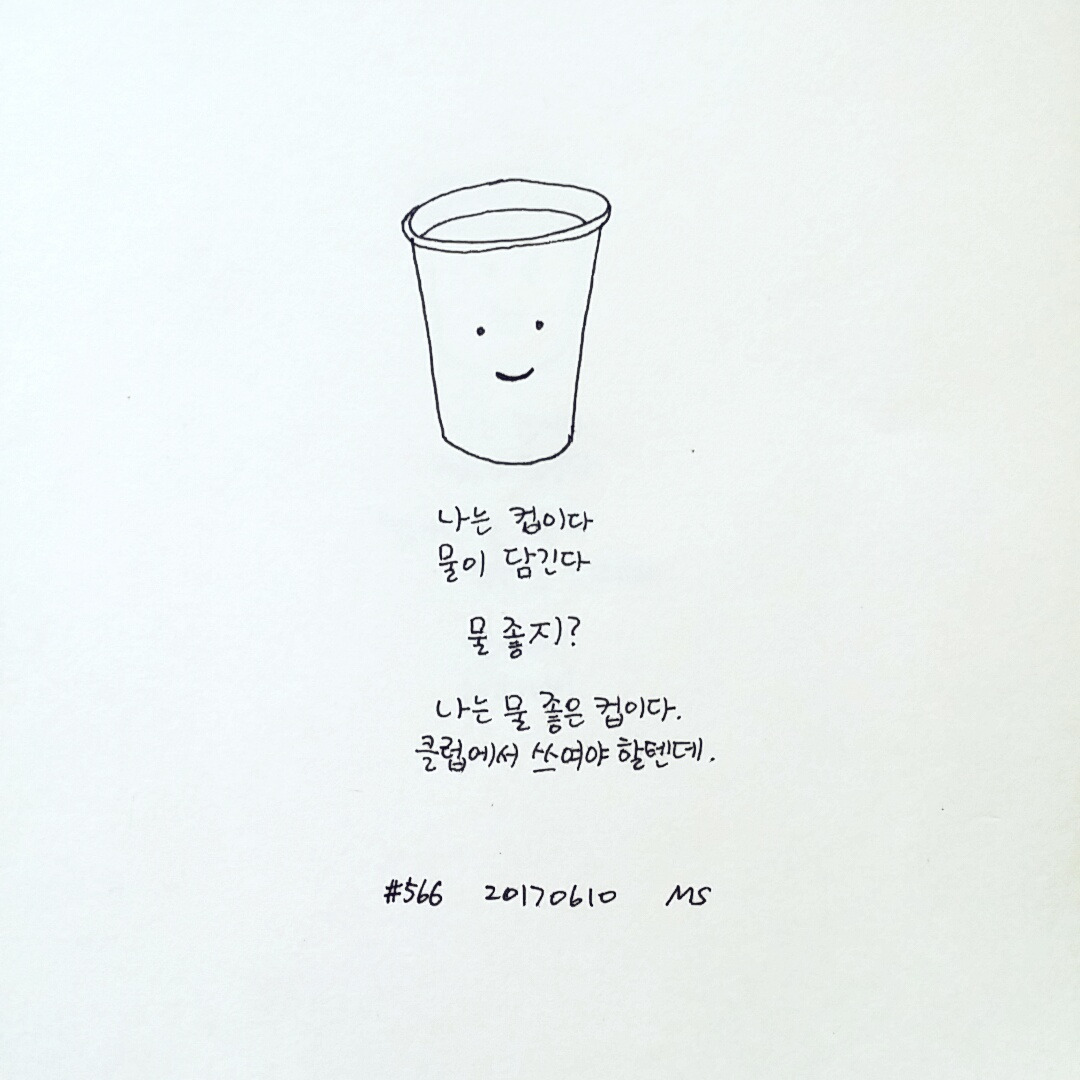 나는 컵이다
물이 담긴다
물 좋지?
나는 물 좋은 컵이다.
클럽에서 쓰여야 할텐데.
#566 20170610 MS